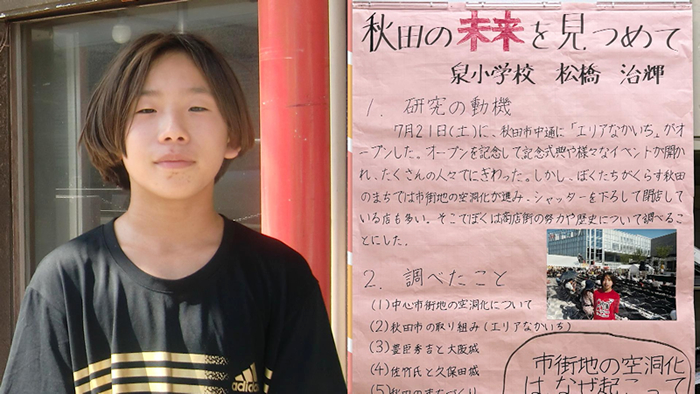 秋田の未来を見つめて
泉小学校 松橋 治輝
1. 研究の動機
7月21日(土)に、秋田市中通に「エリアなかいち」がオ
ープンした。オープンを記念して記念式典や様々なイベントが開か
れ、たくさんの人々でにぎわった。しかし、ぼくたちがくらす秋田
のまちでは市街地の空洞化が進み、シャッターを下ろして閉店して
いる店も多い。そこでぼくは商店街の努力や歴史について調べるこ
とにした。
2. 調べたこと
(1)中心市街地の空洞化について
(2)秋田市の取り組み(エリアなかいち)
(3)豊臣秀吉と大阪城
(4)佐竹氏と久保田城
(5)秋田のまちづくり
市街地の空洞化
はなぜ起こって
adidas